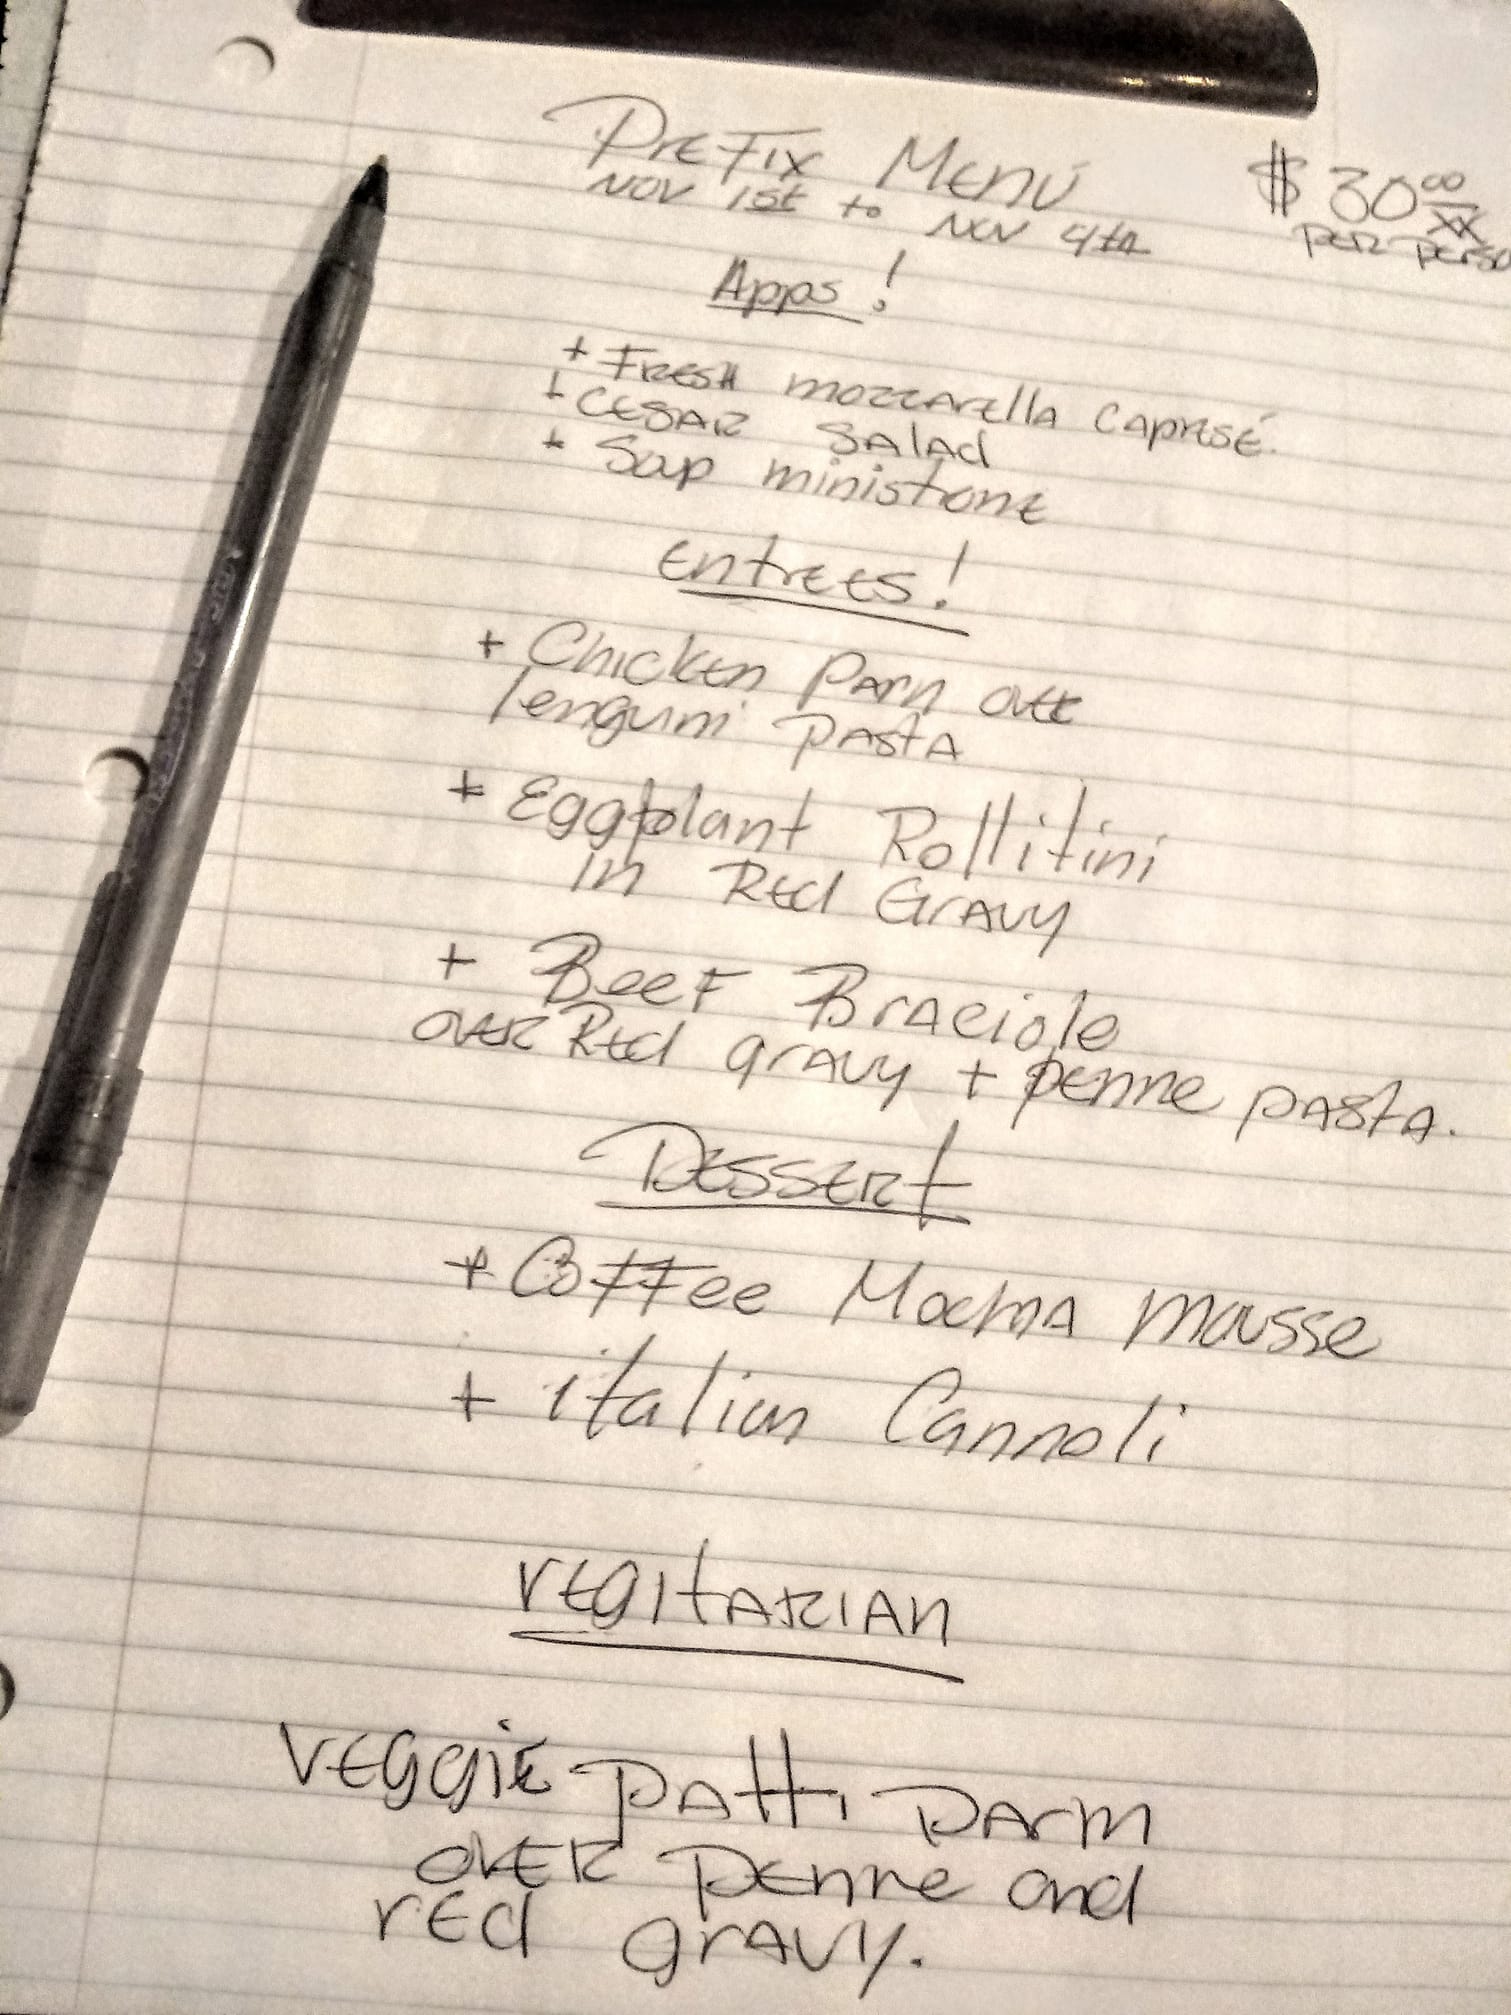 PreFix Menu
$30.00
xx
Nov 1st to Nov 4th
per perso
Apps!
+ Fresh mozzarella Capresé.
+ Cesar Salad
+ Soup ministrone
Entrees!
+ Chicken Parm over
lenguini pasta
+ Eggplant Rollitini
in Red Gravy
+ Beef Braciole
over Red gravy + penne pasta.
Dessert
+ Coffee Mocha Mousse
+ italian Cannoli
vegitarian
veggie patti parm
over penne and
red gravy.